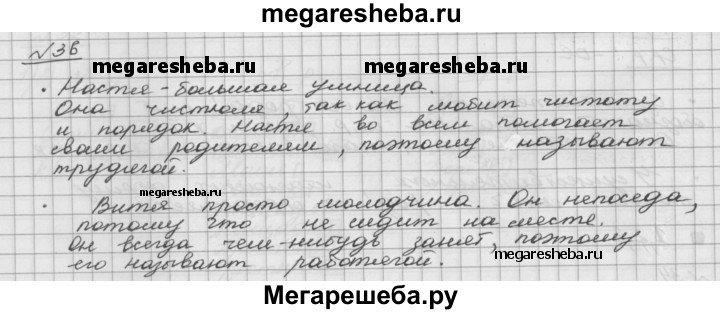 megaresheba.ru
№36
megaresheba.ru megaresheba.ru
• Настя - большая умница.
Она чистюля, так как любит чистоту
и порядок. Настя во всем помогает
своим родителям, поэтому называют
трудягой.
megaresheba.ru
• Витя просто молодчина. Он непоседа,
потому что не сидит на месте.
Он всегда чем-нибудь занят, поэтому
megaresheba.ru
его называют работягой.
Мегарешеба.ру